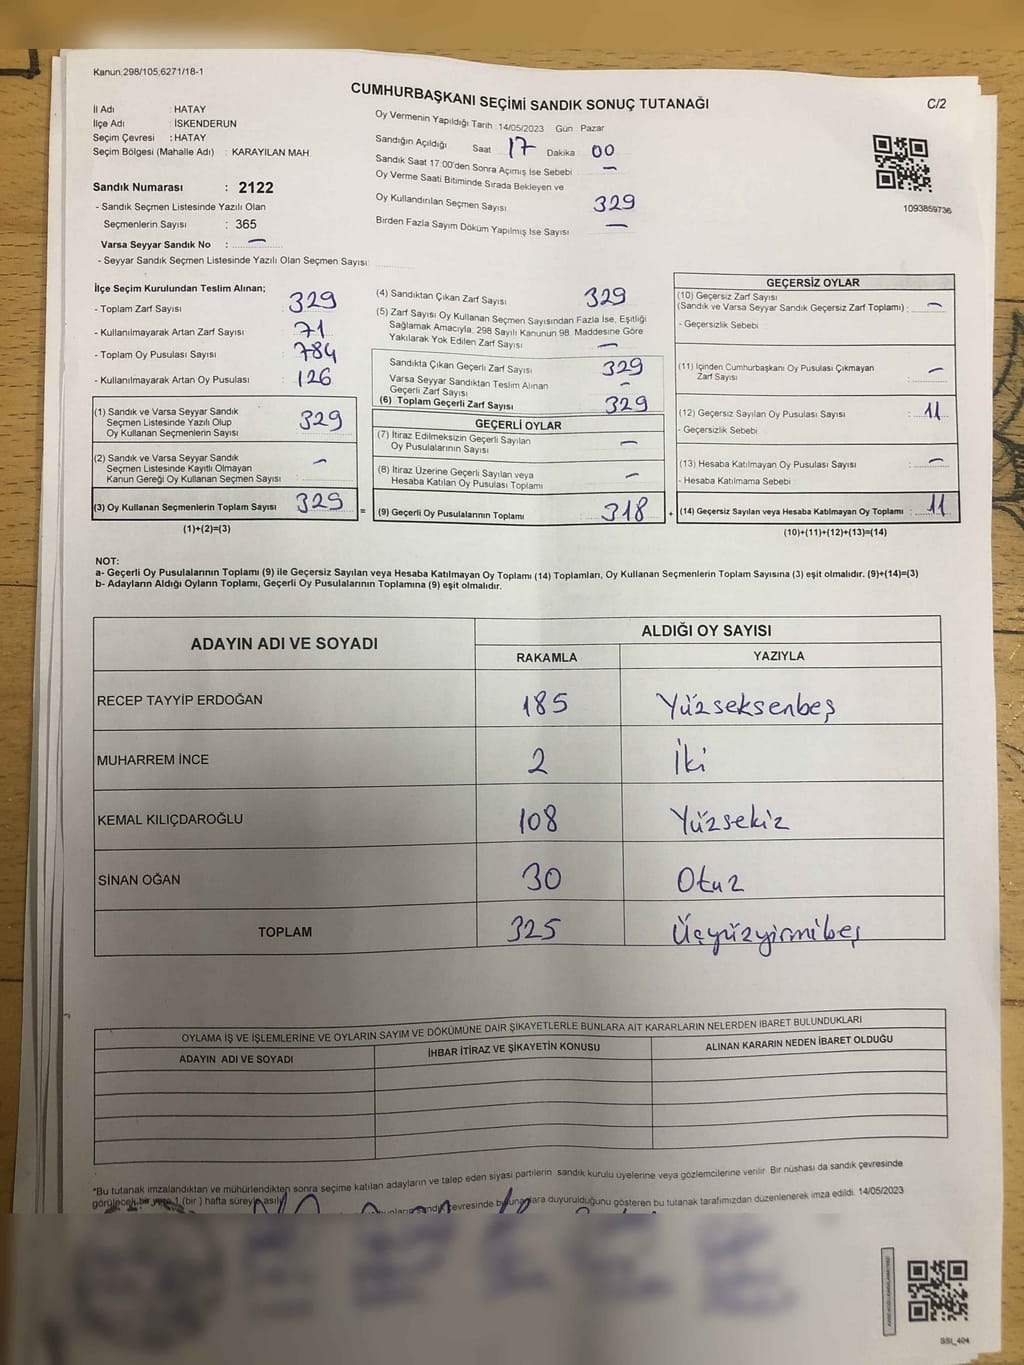 Kanun:298/105;6271/18-1
CUMHURBAŞKANI SEÇİMİ SANDIK SONUÇ TUTANAĞI
C/2
İl Adı : HATAY
İlçe Adı : İSKENDERUN
Seçim Çevresi : HATAY
Seçim Bölgesi (Mahalle Adı) : KARAYILAN MAH.
Sandık Numarası : 2122
- Sandık Seçmen Listesinde Yazılı Olan
Seçmenlerin Sayısı : 365
Varsa Seyyar Sandık No : —
- Seyyar Sandık Seçmen Listesinde Yazılı Olan Seçmen Sayısı:
Oy Vermenin Yapıldığı Tarih : 14/05/2023 Gün : Pazar
Sandığın Açıldığı Saat 17 Dakika 00
Sandık Saat 17:00'den Sonra Açımış İse Sebebi —
Oy Verme Saati Bitiminde Sırada Bekleyen ve
Oy Kullandırılan Seçmen Sayısı 329
Birden Fazla Sayım Döküm Yapılmış İse Sayısı —
1093859736
İlçe Seçim Kurulundan Teslim Alınan;
- Toplam Zarf Sayısı : 329
- Kullanılmayarak Artan Zarf Sayısı : 71
- Toplam Oy Pusulası Sayısı : 784
- Kullanılmayarak Artan Oy Pusulası : 126
(1) Sandık ve Varsa Seyyar Sandık
Seçmen Listesinde Yazılı Olup
Oy Kullanan Seçmenlerin Sayısı : 329
(2) Sandık ve Varsa Seyyar Sandık
Seçmen Listesinde Kayıtlı Olmayan
Kanun Gereği Oy Kullanan Seçmen Sayısı : —
(3) Oy Kullanan Seçmenlerin Toplam Sayısı 329
(1)+(2)=(3)
(4) Sandıktan Çıkan Zarf Sayısı 329
(5) Zarf Sayısı Oy Kullanan Seçmen Sayısından Fazla İse, Eşitliği
Sağlamak Amacıyla; 298 Sayılı Kanunun 98. Maddesine Göre
Yakılarak Yok Edilen Zarf Sayısı —
Sandıkta Çıkan Geçerli Zarf Sayısı 329
Varsa Seyyar Sandıktan Teslim Alınan
Geçerli Zarf Sayısı —
(6) Toplam Geçerli Zarf Sayısı 329
GEÇERLİ OYLAR
(7) İtiraz Edilmeksizin Geçerli Sayılan
Oy Pusulalarının Sayısı —
(8) İtiraz Üzerine Geçerli Sayılan veya
Hesaba Katılan Oy Pusulası Toplamı —
= (9) Geçerli Oy Pusulalarının Toplamı 318 +
GEÇERSİZ OYLAR
(10) Geçersiz Zarf Sayısı
(Sandık ve Varsa Seyyar Sandık Geçersiz Zarf Toplamı) : —
- Geçersizlik Sebebi
(11) İçinden Cumhurbaşkanı Oy Pusulası Çıkmayan
Zarf Sayısı : —
(12) Geçersiz Sayılan Oy Pusulası Sayısı : 11
- Geçersizlik Sebebi
(13) Hesaba Katılmayan Oy Pusulası Sayısı : —
- Hesaba Katılmama Sebebi
(14) Geçersiz Sayılan veya Hesaba Katılmayan Oy Toplamı : 11
(10)+(11)+(12)+(13)=(14)
NOT:
a- Geçerli Oy Pusulalarının Toplamı (9) ile Geçersiz Sayılan veya Hesaba Katılmayan Oy Toplamı (14) Toplamları, Oy Kullanan Seçmenlerin Toplam Sayısına (3) eşit olmalıdır. (9)+(14)=(3)
b- Adayların Aldığı Oyların Toplamı, Geçerli Oy Pusulalarının Toplamına (9) eşit olmalıdır.
ADAYIN ADI VE SOYADI ALDIĞI OY SAYISI
RAKAMLA YAZIYLA
RECEP TAYYİP ERDOĞAN 185 Yüzseksenbeş
MUHARREM İNCE 2 İki
KEMAL KILIÇDAROĞLU 108 Yüzsekiz
SİNAN OĞAN 30 Otuz
TOPLAM 325 Üçyüzyirmibeş
OYLAMA İŞ VE İŞLEMLERİNE VE OYLARIN SAYIM VE DÖKÜMÜNE DAİR ŞİKAYETLERLE BUNLARA AİT KARARLARIN NELERDEN İBARET BULUNDUKLARI
ADAYIN ADI VE SOYADI İHBAR İTİRAZ VE ŞİKAYETİN KONUSU ALINAN KARARIN NEDEN İBARET OLDUĞU
*Bu tutanak imzalandıktan ve mühürlendikten sonra seçime katılan adayların ve talep eden siyasi partilerin sandık kurulu üyelerine veya gözlemcilerine verilir. Bir nüshası da sandık çevresinde
görülecek bir yere 1 (bir) hafta süreyle asılır. çevresinde bulunanlara duyurulduğunu gösteren bu tutanak tarafımızdan düzenlenerek imza edildi. 14/05/2023
SSI_404